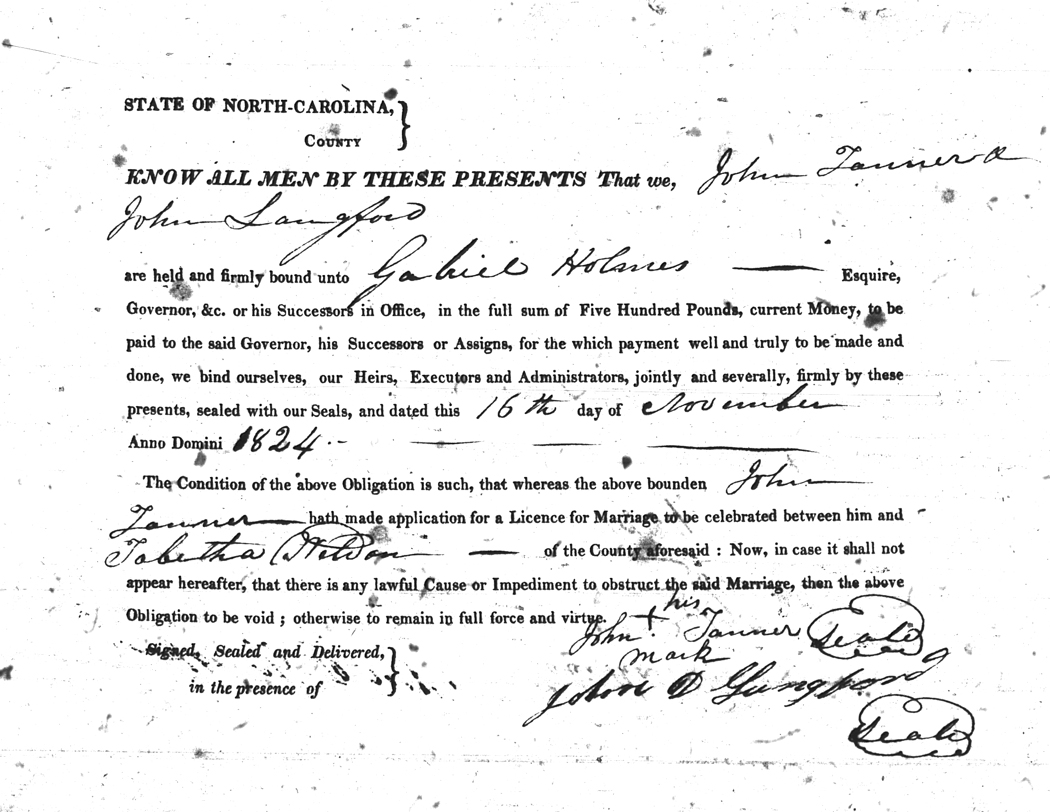 STATE OF NORTH-CAROLINA, }
COUNTY
KNOW ALL MEN BY THESE PRESENTS That we, John Tanner &
John Langford
are held and firmly bound unto Gabriel Holmes — Esquire,
Governor, &c. or his Successors in Office, in the full sum of Five Hundred Pounds, current Money, to be
paid to the said Governor, his Successors or Assigns, for the which payment well and truly to be made and
done, we bind ourselves, our Heirs, Executors and Administrators, jointly and severally, firmly by these
presents, sealed with our Seals, and dated this 16th day of November
Anno Domini 1824
The Condition of the above Obligation is such, that whereas the above bounden John
Tanner hath made application for a Licence for Marriage to be celebrated between him and
Tabetha — of the County aforesaid : Now, in case it shall not
appear hereafter, that there is any lawful Cause or Impediment to obstruct the said Marriage, then the above
Obligation to be void ; otherwise to remain in full force and virtue.
his
John + Tanner (Seal)
mark
Signed, Sealed and Delivered, }
in the presence of
John D Langford
(Seal)